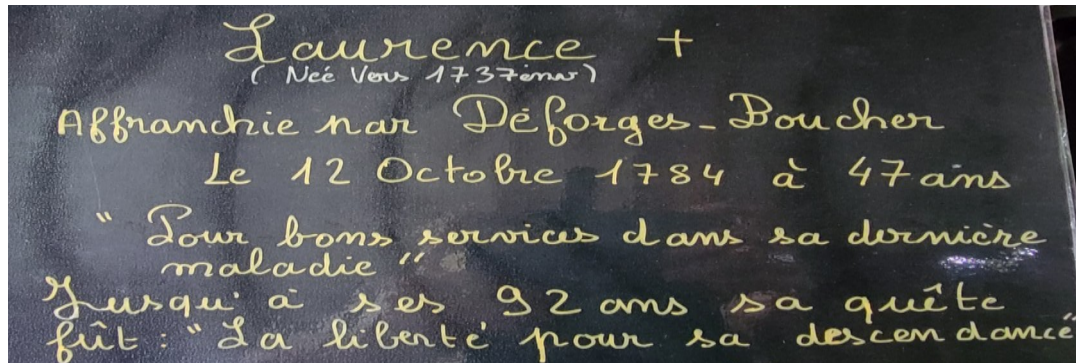 Laurence +
( Neé Vers 1737 )
Affranchie par Déforges-Boucher
Le 12 Octobre 1784 à 47 ans
" Pour bons services dans sa dernière
maladie "
Jusqu'à ses 92 ans sa quête
fût : " La liberté pour sa descendance"